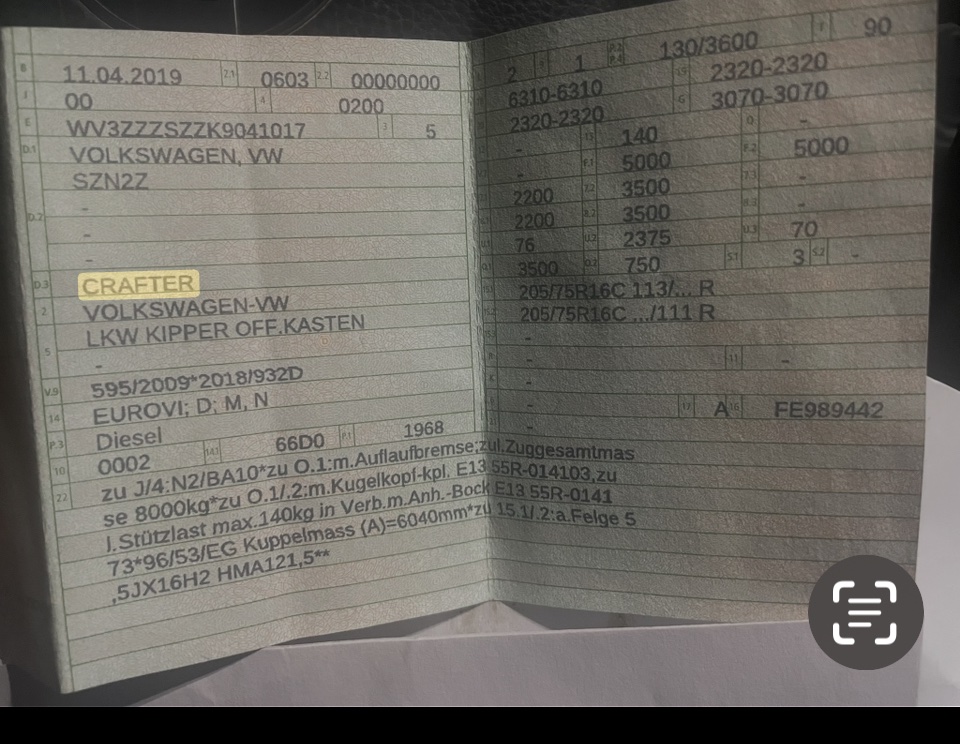 B 11.04.2019 2.1 0603 2.2 00000000
J 00 4 0200
E WV3ZZZSZZK9041017 3 5
D.1 VOLKSWAGEN, VW
SZN2Z
-
D.2 -
-
D.3 CRAFTER
2 VOLKSWAGEN-VW
LKW KIPPER OFF.KASTEN
5 -
V.9 595/2009*2018/932D
14 EUROVI; D; M, N
P.3 Diesel
10 0002 14.1 66D0 P.1 1968
22 zu J/4:N2/BA10*zu O.1:m.Auflaufbremse;zul.Zuggesamtmas
se 8000kg*zu O.1/.2:m.Kugelkopf-kpl. E13 55R-014103,zu
l.Stützlast max.140kg in Verb.m.Anh.-Bock E13 55R-0141
73*96/53/EG Kuppelmass (A)=6040mm*zu 15.1/.2:a.Felge 5
,5JX16H2 HMA121,5**
2 9 1 P.2 P.4 130/3600 T 90
6310-6310 2320-2320
2320-2320 G 3070-3070
- 13 140 Q -
- F.1 5000 F.2 5000
2200 7.2 3500 7.3 -
2200 8.2 3500 8.3 -
76 U.2 2375 U.3 70
3500 O.2 750 S.1 3 S.2 -
205/75R16C 113/... R
205/75R16C .../111 R
-
- 11 -
-
- 17 A 16 FE989442
-